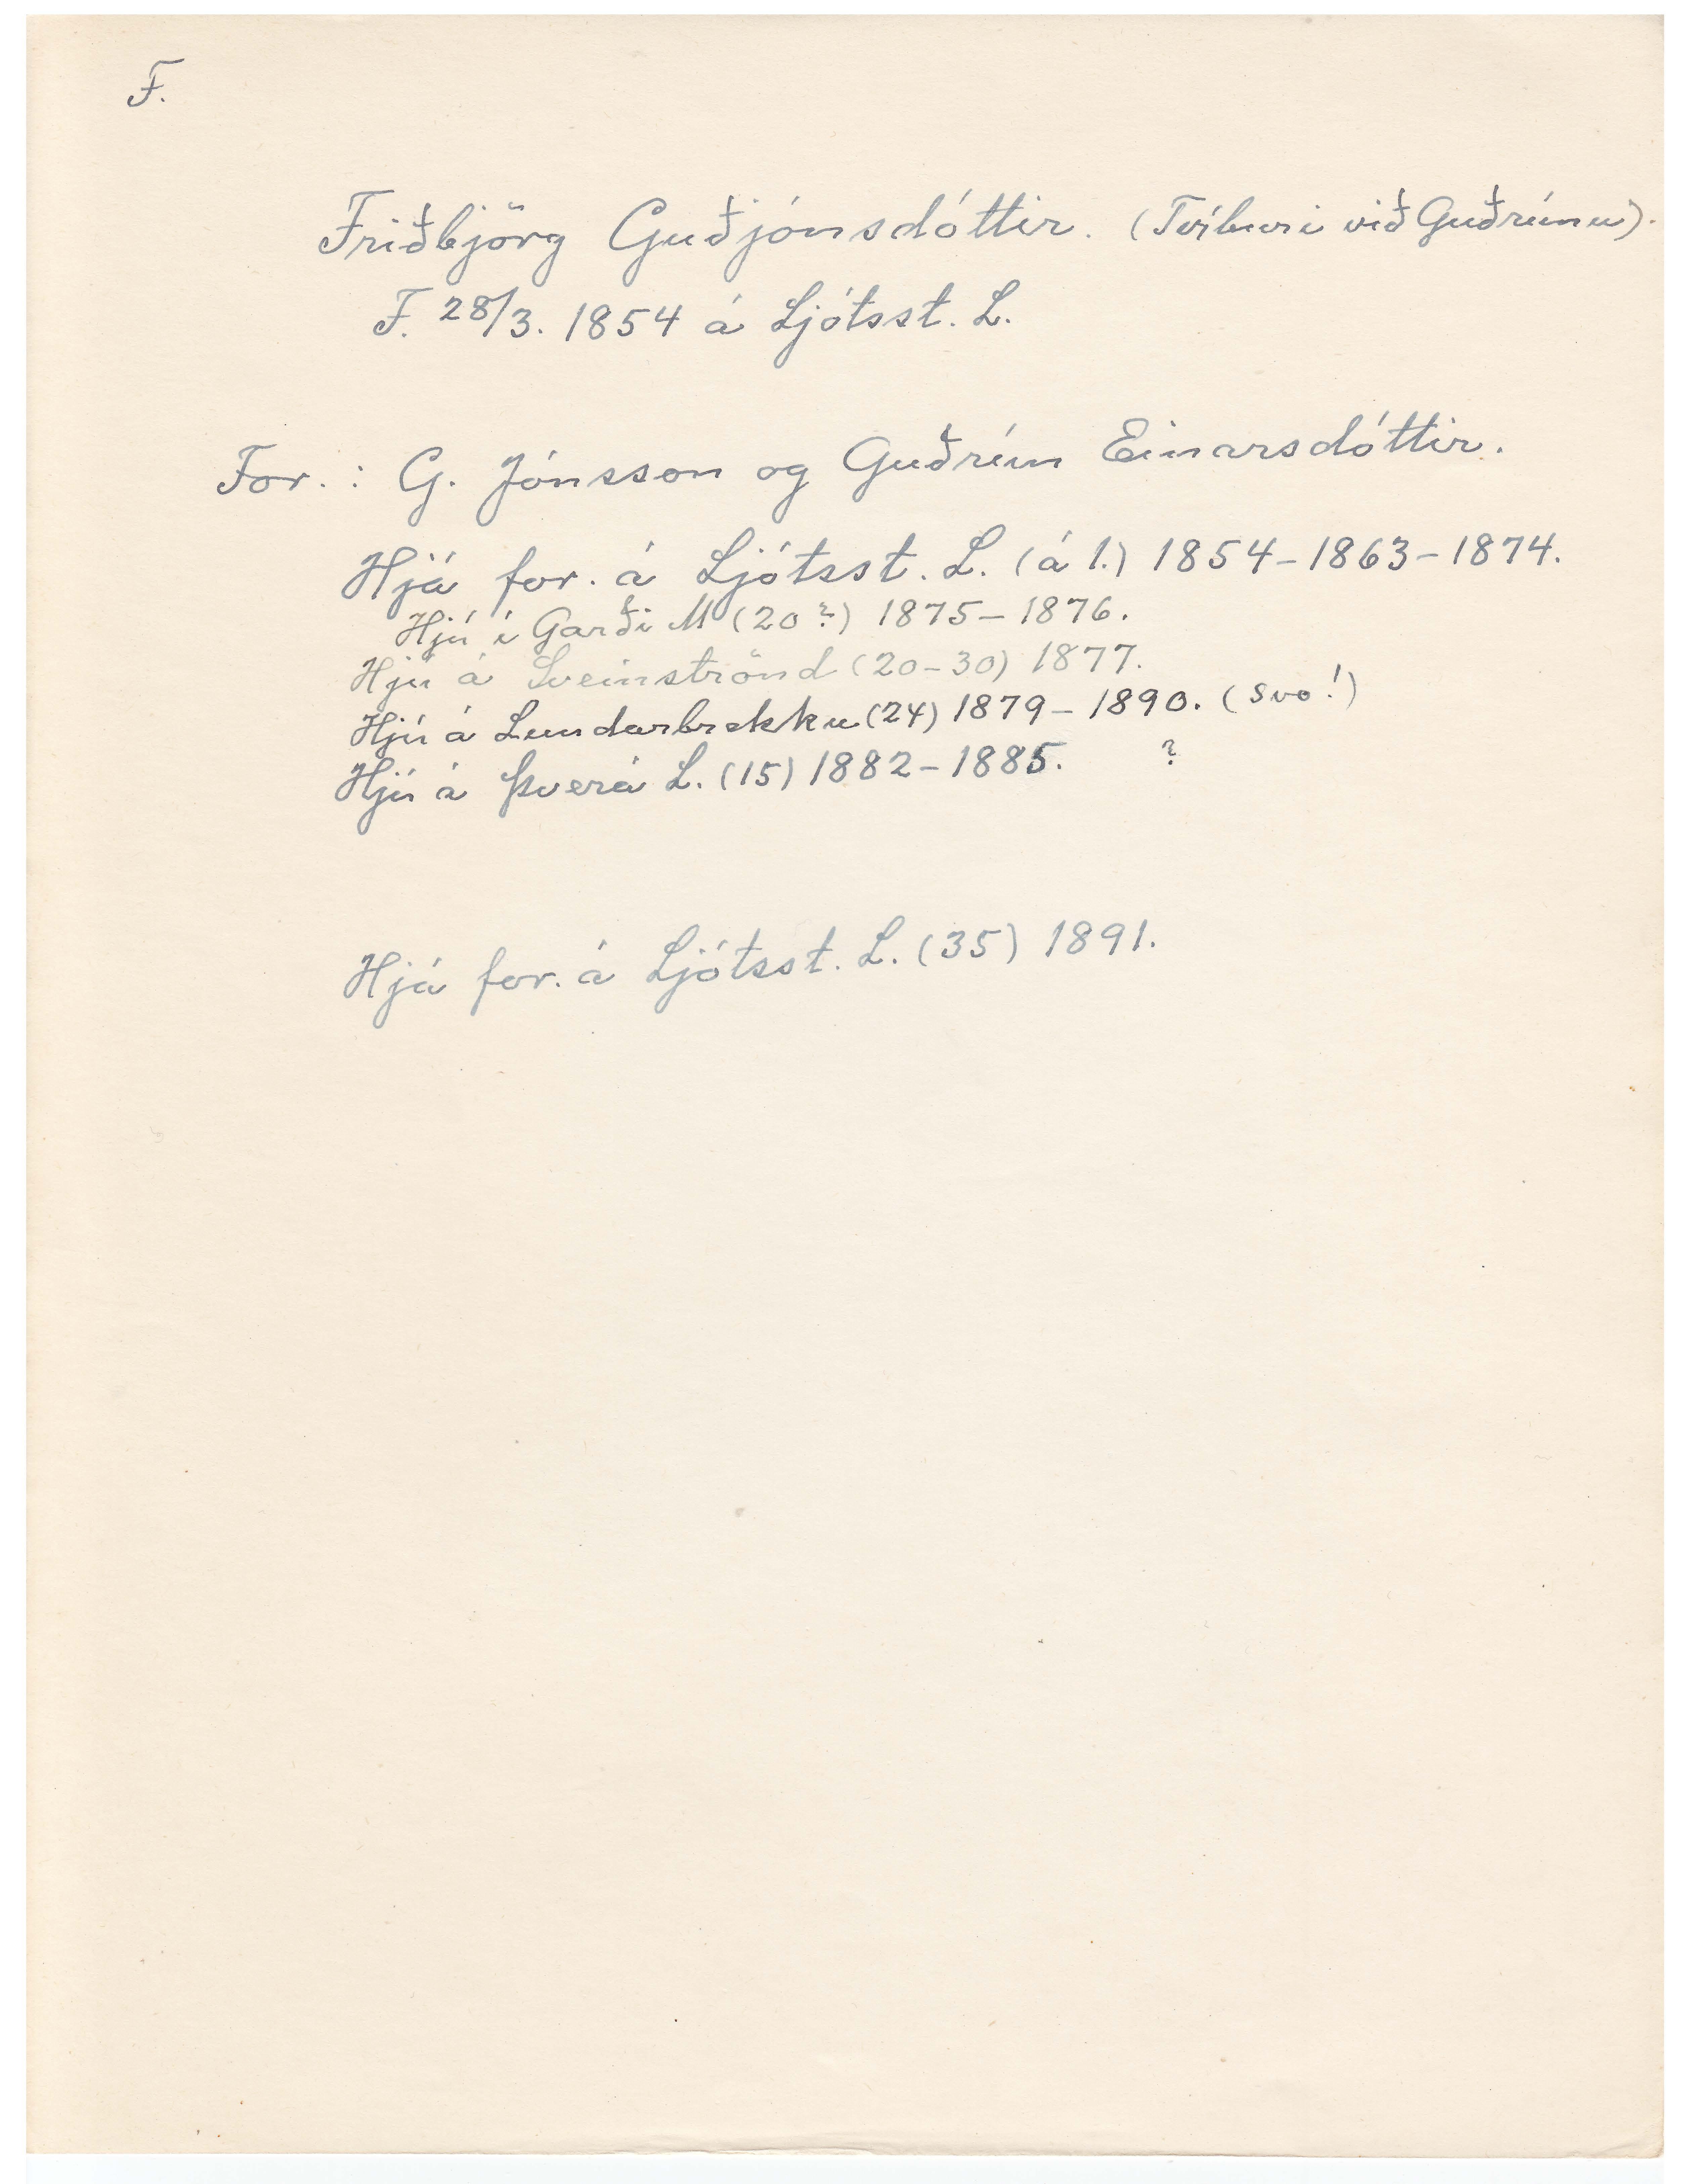 F.
Friðbjörg Guðjónsdóttir. (Tvíburi við Guðrúnu).
F. 28/3. 1854 á Ljótsst. L.
For. : G. Jónsson og Guðrún Einarsdóttir.
Hjá for. á Ljótsst. L. (á 1.) 1854-1863-1874.
Hjú í Garði M (20?) 1875-1876.
Hjú á Sveinströnd (20-30) 1877.
Hjú á Lundarbrekku (24) 1879-1890. (svo!)
Hjú á Þverá L. (15) 1882-1885. ?
Hjá for. á Ljótsst. L. (35) 1891.